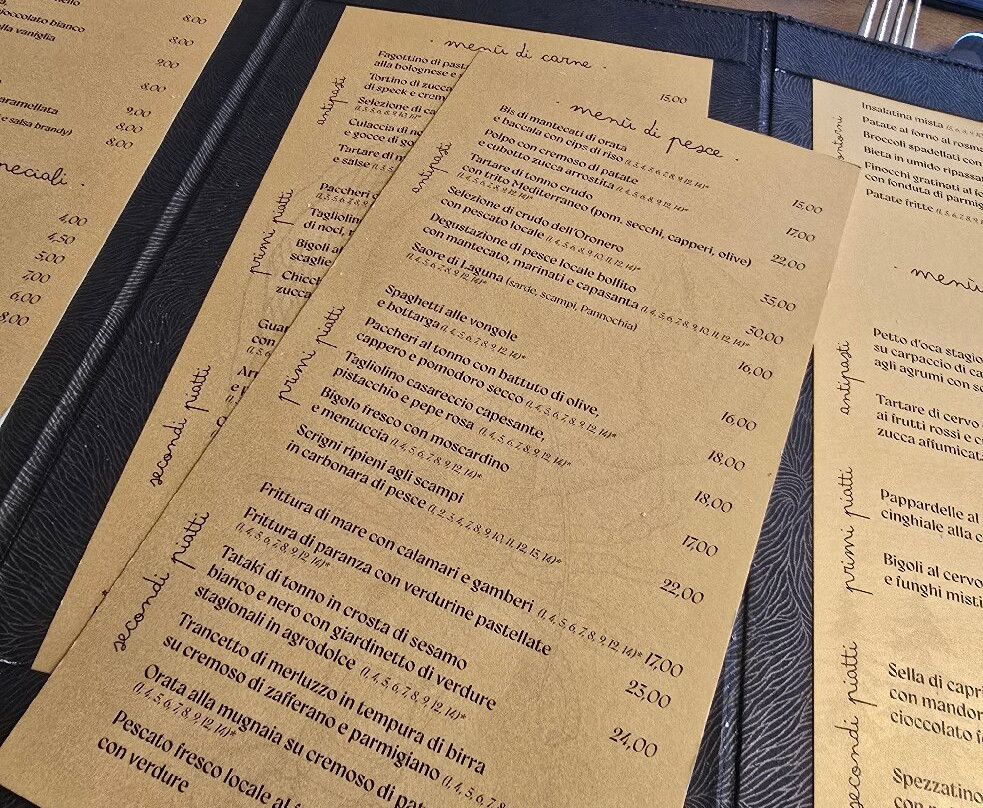 cioccolato bianco
alla vaniglia
8,00
8,00
9,00
8,00
9,00
8,00
8,00
caramellata
e salsa brandy)
speciali .
4,00
4,50
5,00
7,00
6,00
8,00
. menù di carne .
antipasti
Fagottino di
alla bolognese e
15,00
Tortino di zucca
di speck e crem
Selezione di
Culaccia di
e gocce di
Tartare di
e salse
primi piatti
Paccheri
di noci,
Bigoli
zucca
secondi piatti
con
. menù di pesce .
antipasti
Bis di mantecati di orata
e baccala con cips di riso (1,3,4,5,6,7,8,9,12,14)*
15,00
Polpo con cremoso di patate
e cubotto zucca arrostita (1,4,5,6,7,8,9,12,14)*
17,00
Tartare di tonno crudo
con trito Mediterraneo (pom. secchi, capperi, olive)
(1,4,5,6,7,8,9,12,14)*
22,00
Selezione di crudo dell'Oronero
con pescato locale (1,4,5,6,8,9,10,11,12,14)*
35,00
Degustazione di pesce locale bollito
con mantecato, marinati e capasanta (1,4,5,6,7,8,9,10,11,12,14)*
30,00
Saore di Laguna (sarde, scampi, Pannochia)
(1,4,5,6,7,8,9,12,14)*
16,00
primi piatti
Spaghetti alle vongole
e bottarga (1,4,5,6,7,8,9,12,14)*
16,00
Paccheri al tonno con battuto di olive,
cappero e pomodoro secco (1,4,5,6,7,8,9,12,14)*
18,00
Tagliolino casareccio capesante,
pistacchio e pepe rosa (1,4,5,6,7,8,9,12,14)*
18,00
Bigolo fresco con moscardino
e mentuccia (1,4,5,6,7,8,9,12,14)*
17,00
Scrigni ripieni agli scampi
in carbonara di pesce (1,2,3,4,7,8,9,10,11,12,13,14)*
22,00
secondi piatti
Frittura di mare con calamari e gamberi (1,4,5,6,7,8,9,12,14)*
17,00
Frittura di paranza con verdurine pastellate
(1,4,5,6,7,8,9,12,14)*
23,00
Tataki di tonno in crosta di sesamo
bianco e nero con giardinetto di verdure
stagionali in agrodolce (1,4,5,6,7,8,9,12,14)*
24,00
Trancetto di merluzzo in tempura di birra
su cremoso di zafferano e parmigiano
Orata alla mugnaia su cremoso di
(1,4,5,6,7,8,9,12,14)*
Pescato fresco locale
con verdure
Insalatina mista
Patate al forno al
Broccoli spadellati con
Bieta in umido
Finocchi gratinati al
con fonduta di
Patate fritte
. menù
antipasti
Petto d'oca
su carpaccio di
agli agrumi con
Tartare di cervo
ai frutti rossi e
zucca affumicata
primi piatti
Pappardelle al
cinghiale alla
Bigoli al cervo
e funghi
secondi piatti
Sella di
con
cioccolato
Spezzatino